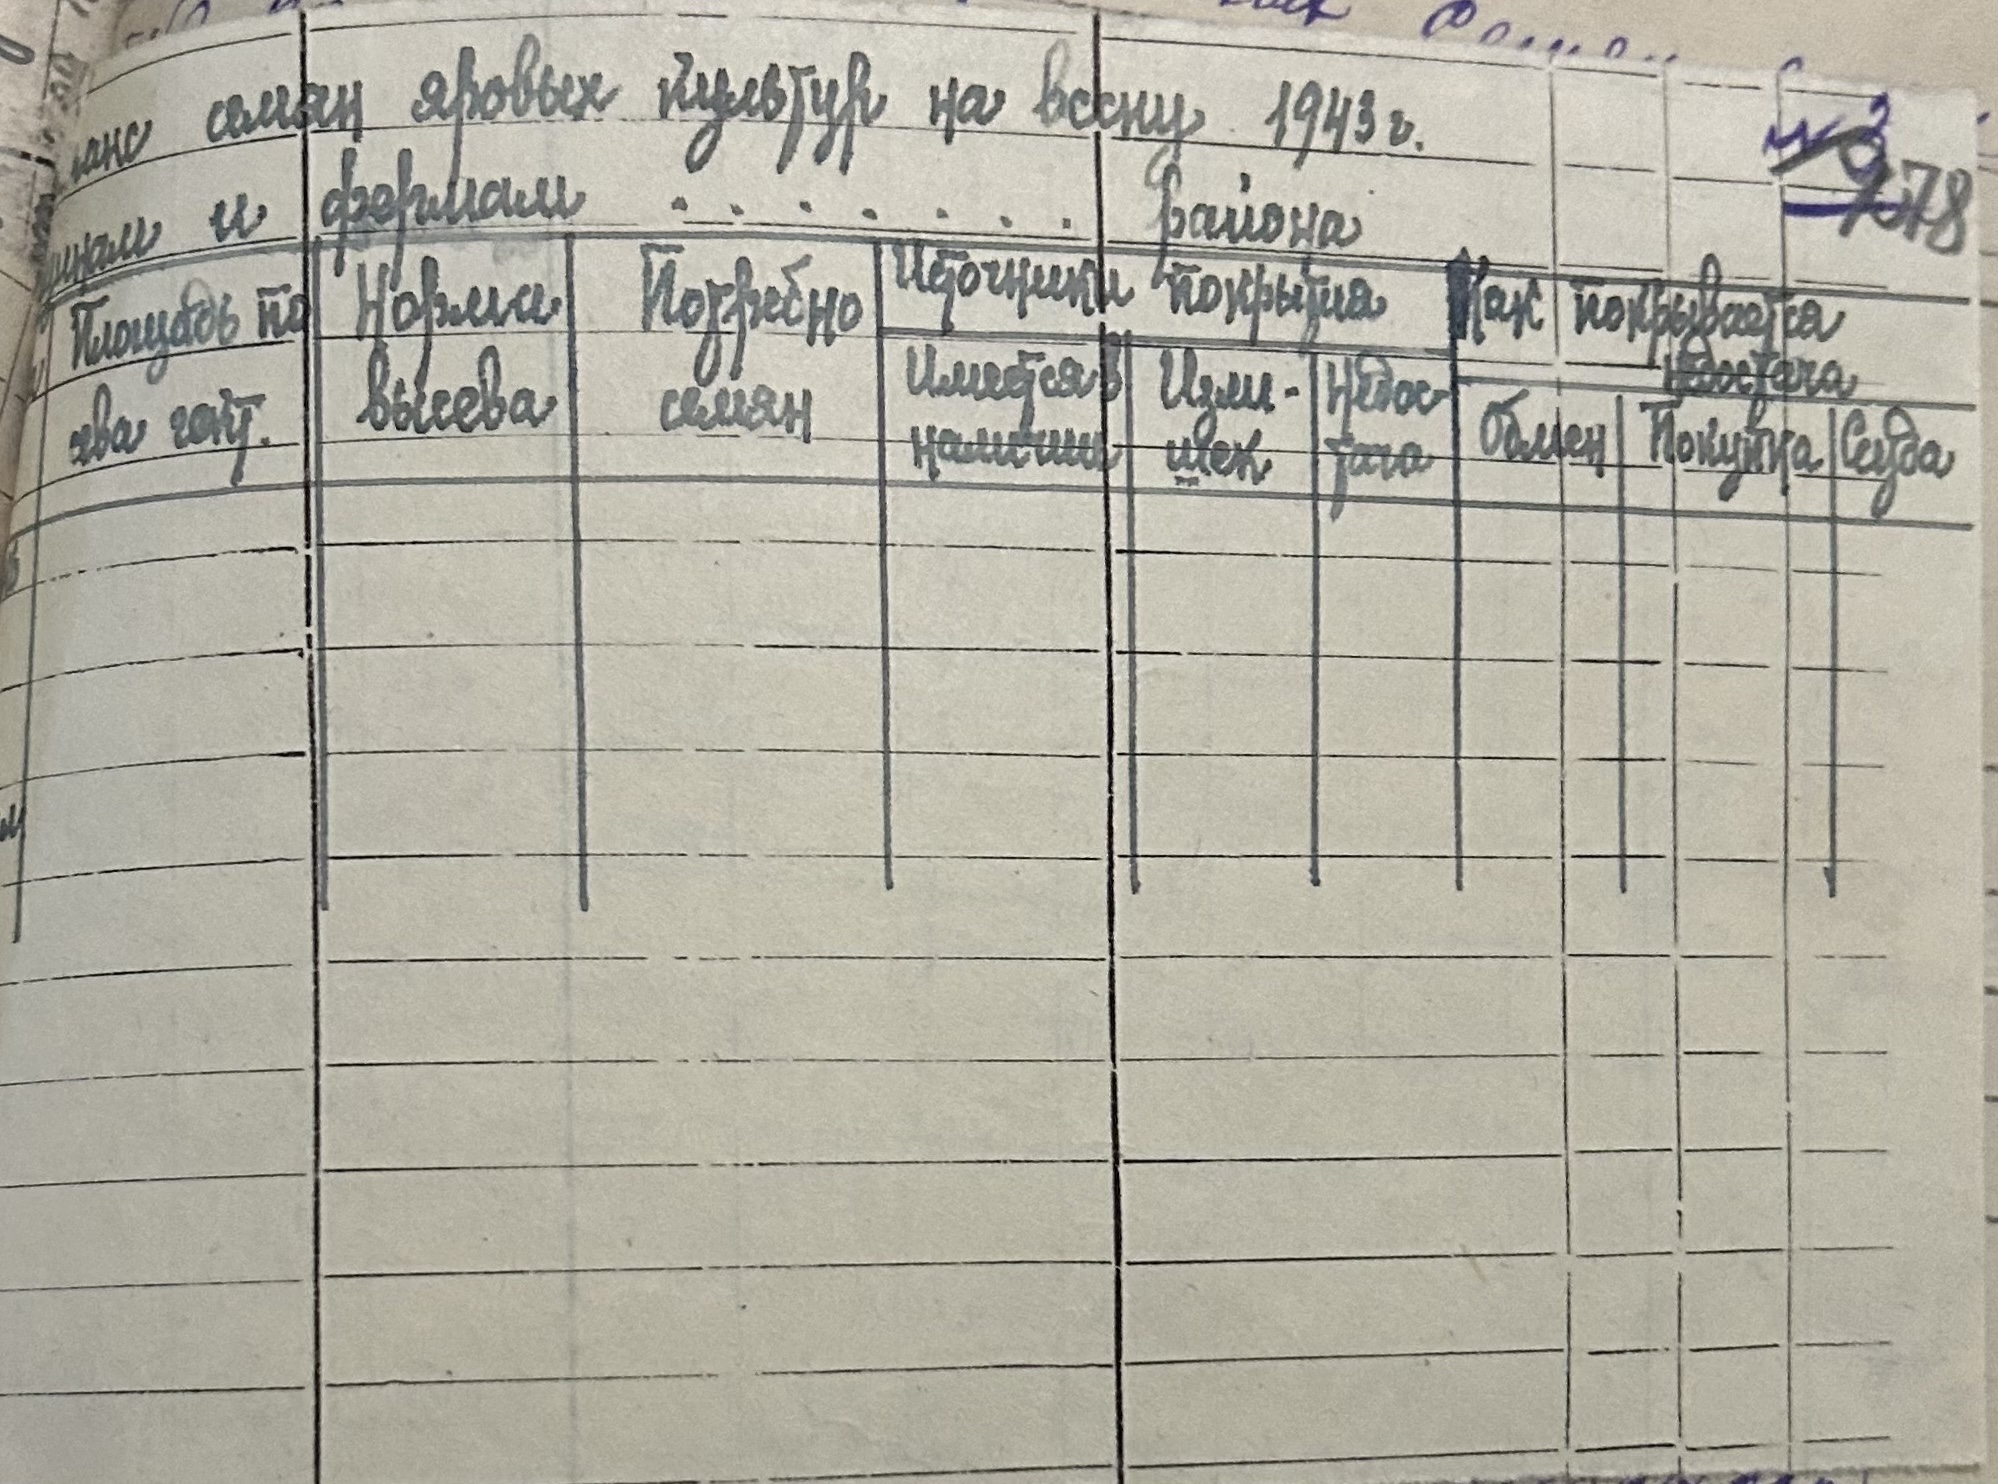 ланс семян яровых культур на весну 1943 г.
щинам и фермам . . . . . . . района
278
Площадь по
сева гект.
Нормы
высева
Потребно
семян
Источники покрытия
Имеется в
наличии
Изли-
шек
Недос-
тача
Как покрывается
недостача
Обмен
Покупка
Ссуда